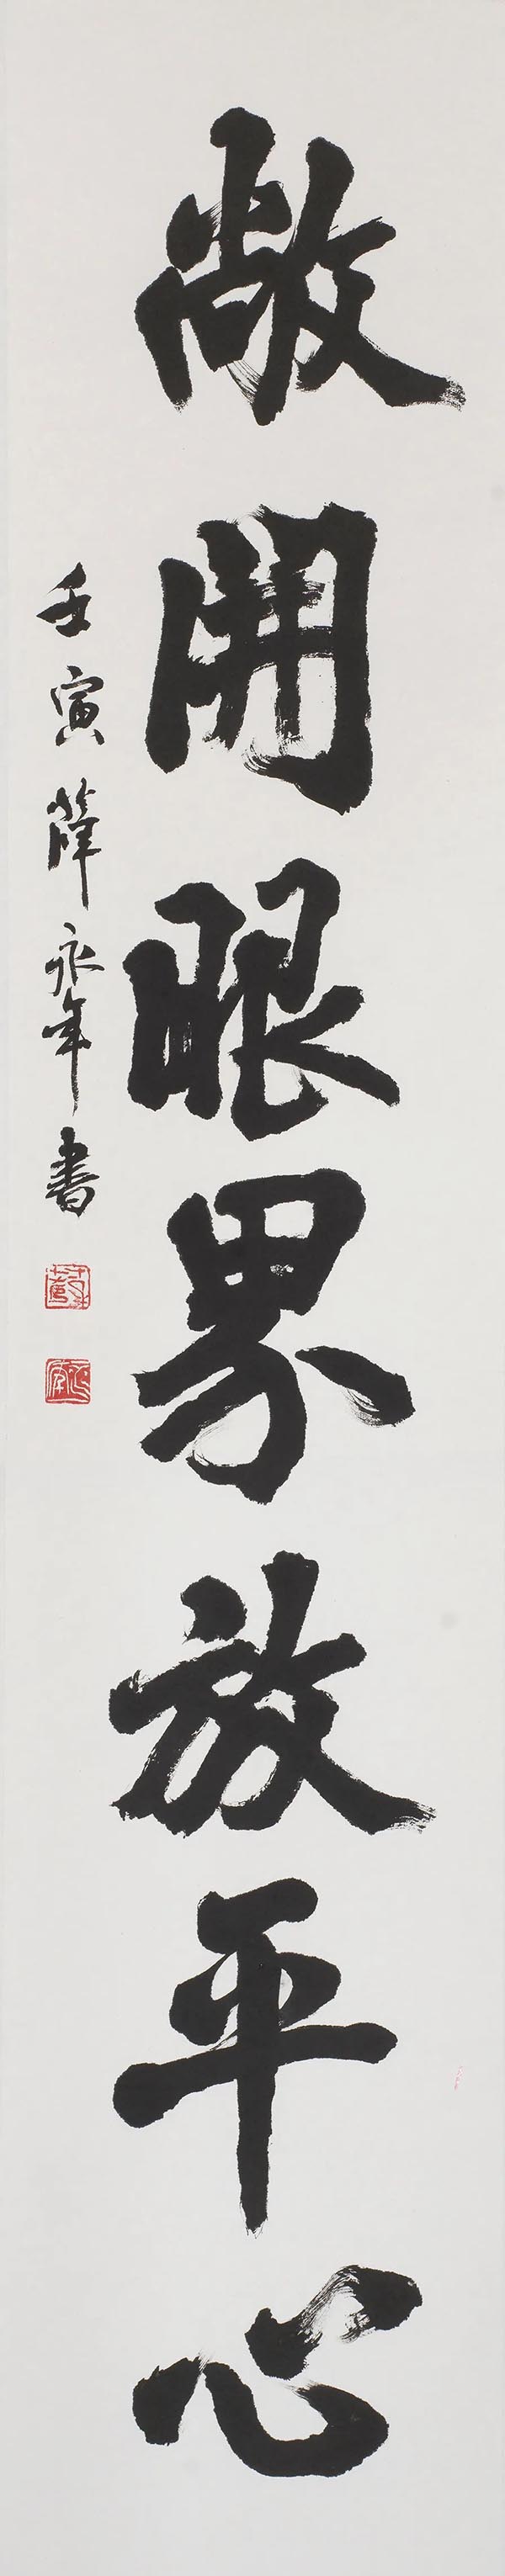 敞開眼界放平心
壬寅薛永年書